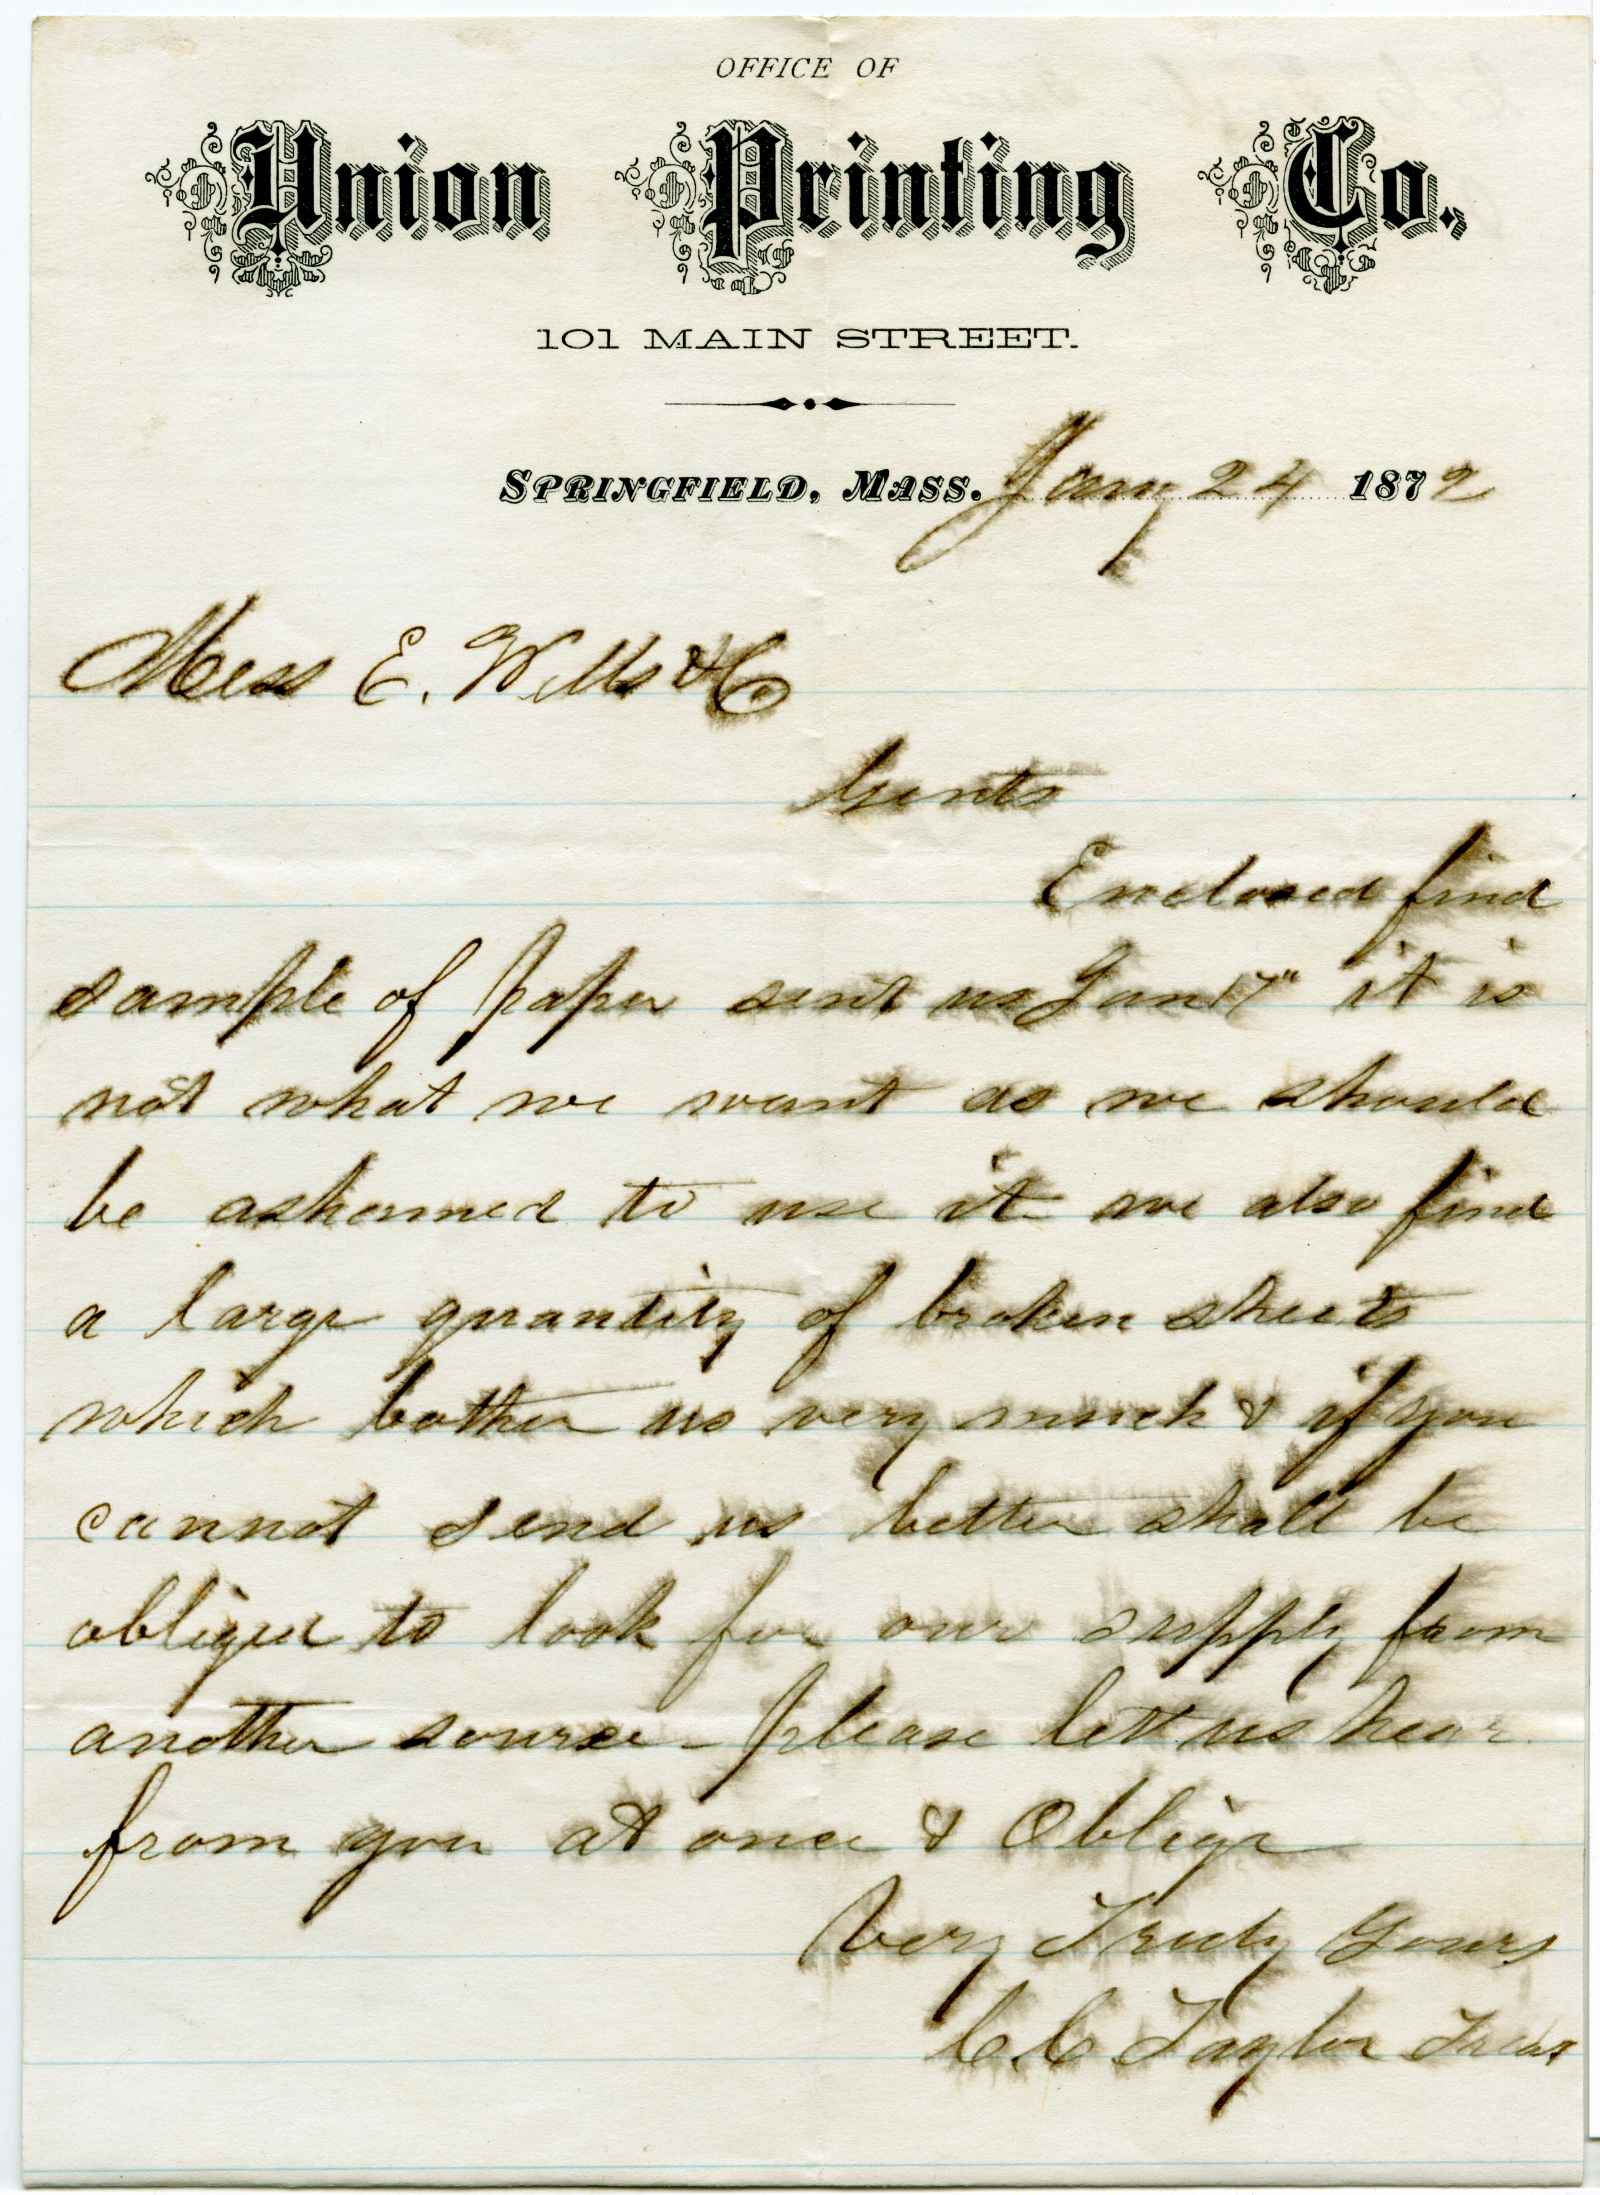 OFFICE OF
Union Printing Co.
101 MAIN STREET.
SPRINGFIELD, MASS. Jany 24 1872
Mess E. Wells & Co
Gents
Enclosed find
sample of paper sent us Jan 17" it is
not what we want as we should
be ashamed to use it we also find
a large quantity of broken sheets
which bother us very much & if you
cannot send us better shall be
obliged to look for our supply from
another source - please let us hear
from you at once & Oblige
Very Truly Yours
C. C. Taylor Treas